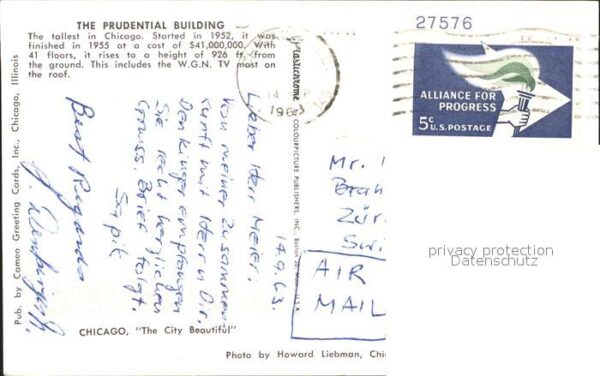 THE PRUDENTIAL BUILDING
The tallest in Chicago. Started in 1952, it was
finished in 1955 at a cost of $41,000,000. With
41 floors, it rises to a height of 926 ft. from
the ground. This includes the W.G.N. TV mast on
the roof.
27576
ALLIANCE FOR
PROGRESS
5c U.S. POSTAGE
14
1963
Plastichrome
COLOURPICTURE PUBLISHERS, INC., Boston 30, U.S.A.
14.9.63.
Lieber Herr Meier,
Von meiner Zusammen
kunft mit Herrn Dr.
empfangen
Sie recht herzlichen
Gruss. Brief folgt.
Best Regards
Mr.
Zür
Swi
AIR
MAIL
privacy protection
Datenschutz
Pub. by Cameo Greeting Cards, Inc., Chicago, Illinois
CHICAGO, "The City Beautiful"
Photo by Howard Liebman, Chi